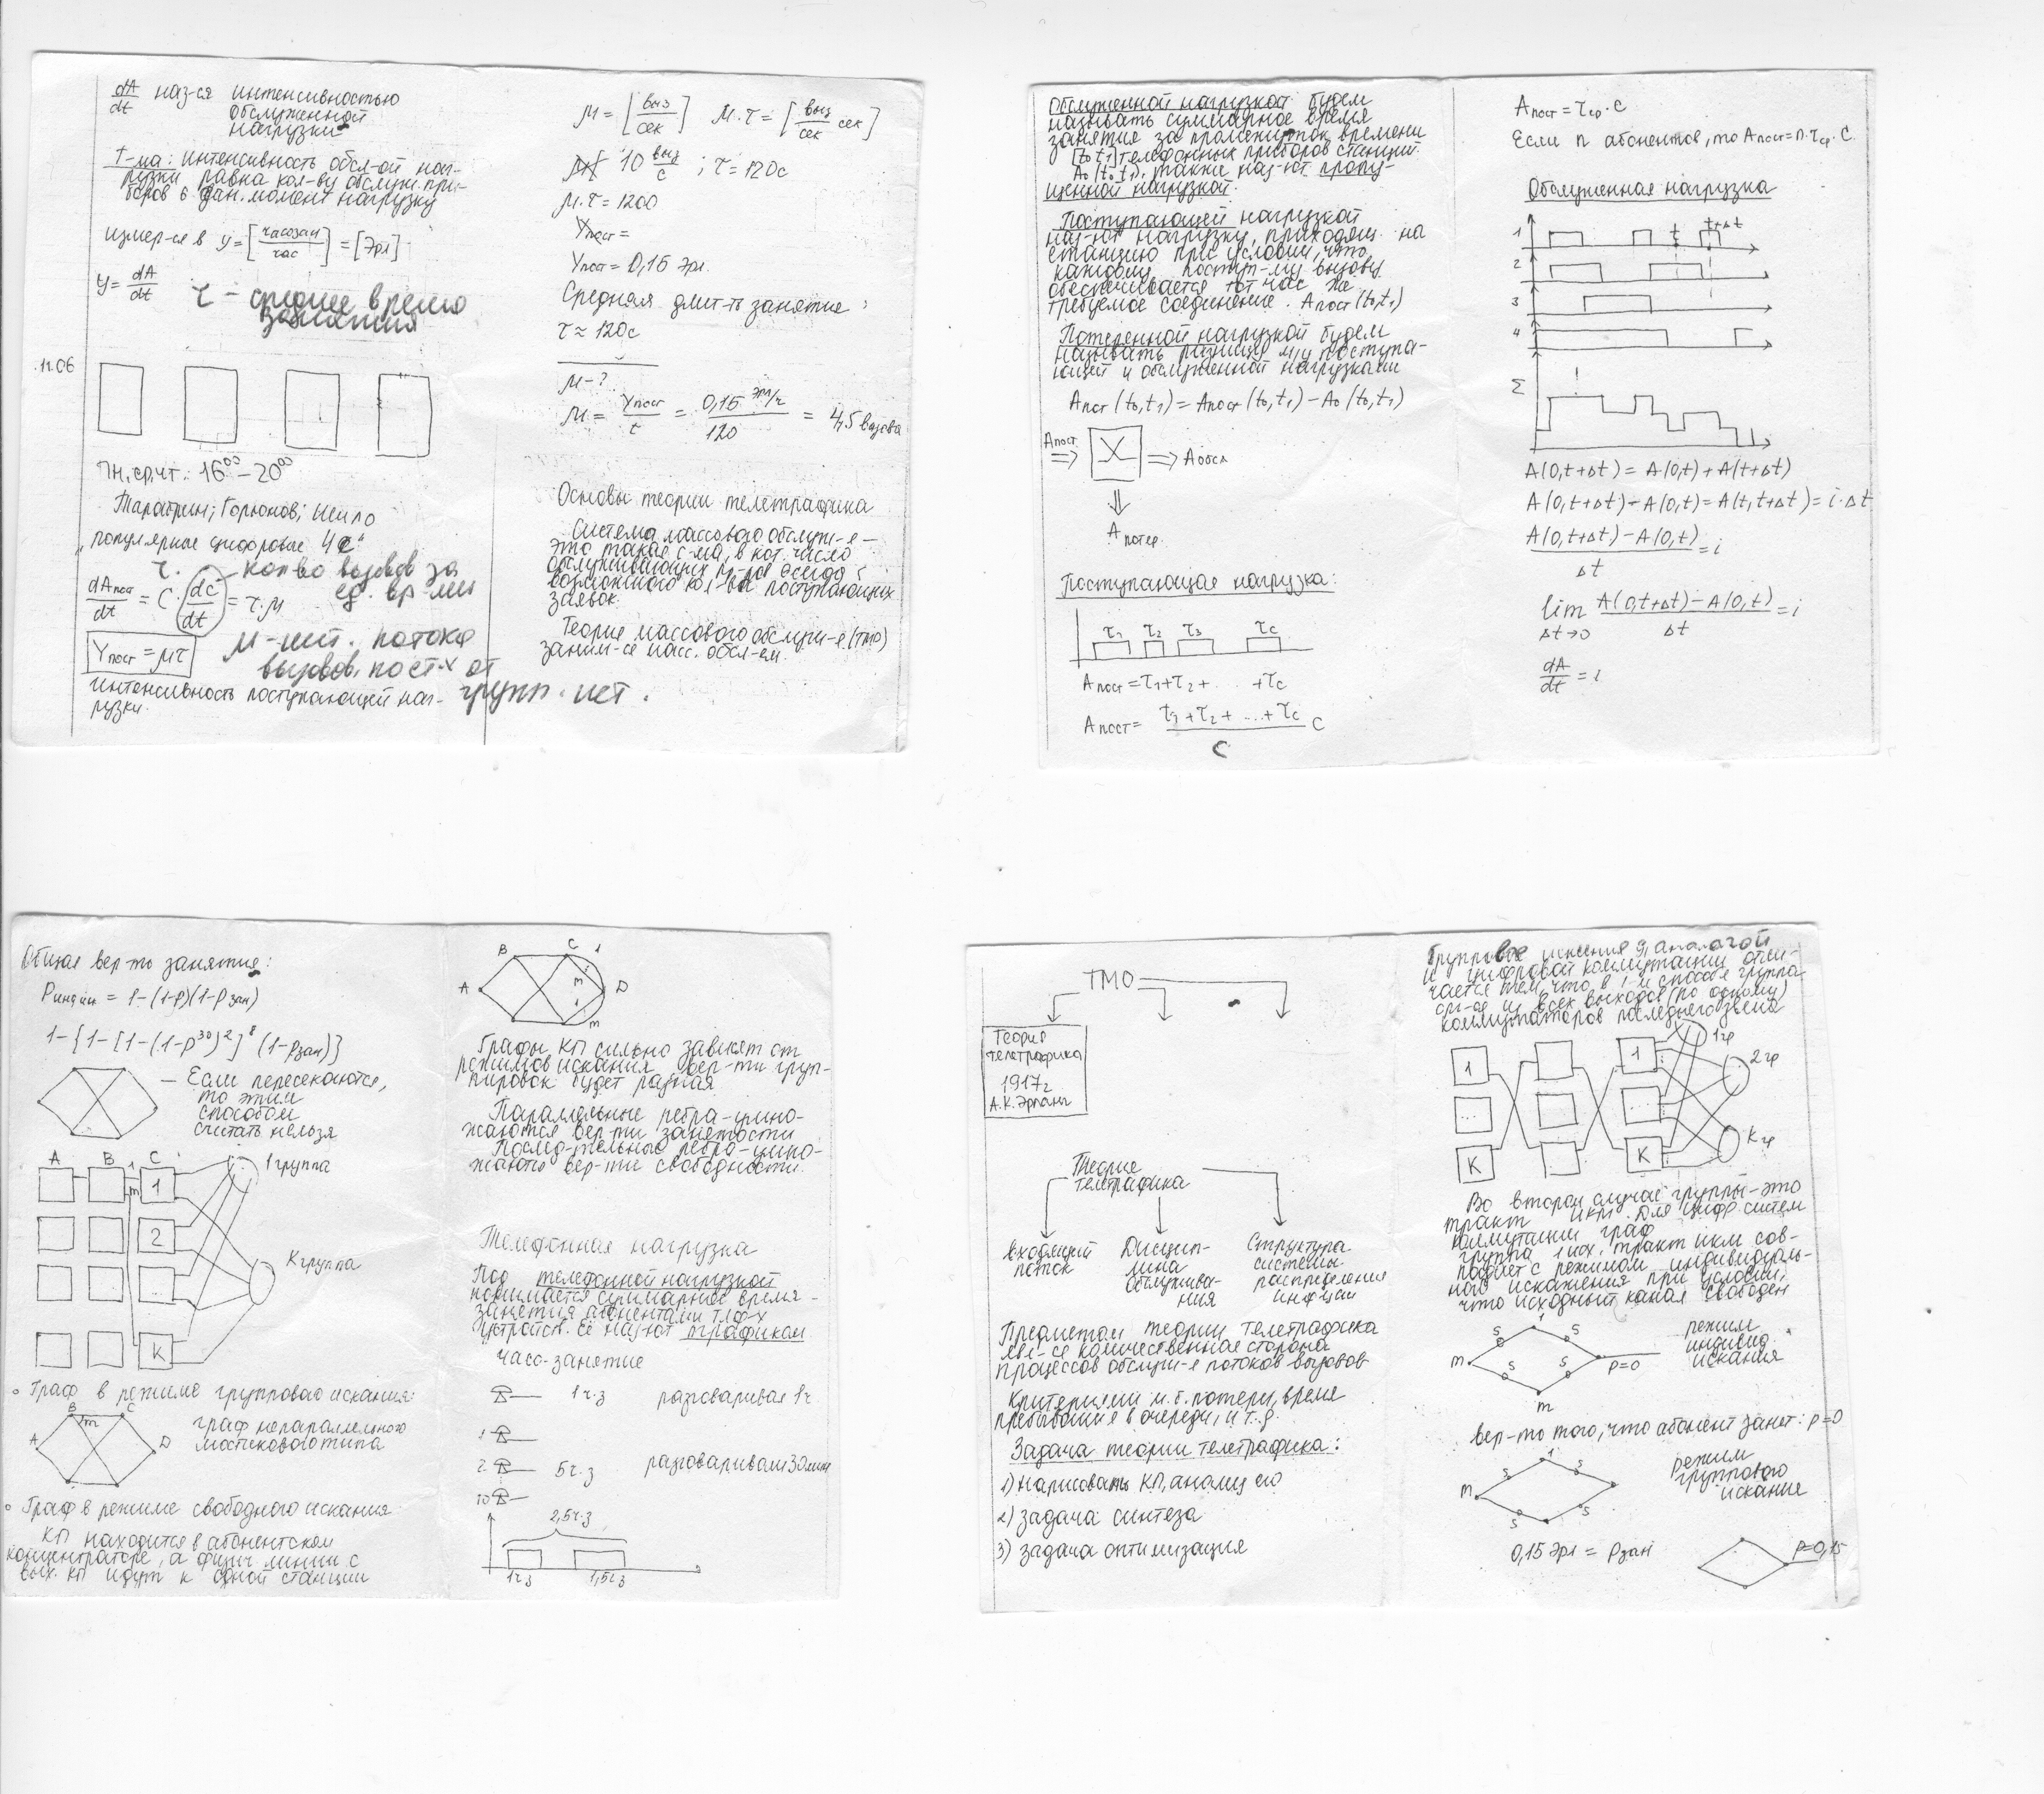 dA/dt наз-ся интенсивностью
обслуженной
нагрузки
Т-ма: интенсивность обсл-ой наг-
рузки равна кол-ву обслуж. при-
боров в дан. момент нагрузку
измер-ся в y=[часозан/час]=[Эрл]
y=dA/dt
τ - среднее время
занятия
11.06
Пн, ср, чт: 16⁰⁰-20⁰⁰
„популярные цифровые
dAпост/dt = C·(dc/dt) = τ·μ
- кол-во вызовов за
ед. вр-мени
Yпост = μτ
μ-инт. потока
вызовов, пост-х от
групп. ист.
интенсивность поступающей наг-
рузки.
μ=[выз/сек] μ·τ=[выз/сек сек]
10 выз/с ; τ=120с
μ·τ=1200
Yпост=
Yпост=0,15 Эрл.
Средняя длит-ть занятие:
τ≈120с
μ-?
μ= Yпост/t = 0,15 Эрл/ч/120 = 4,5 вызова
Основы теории телетрафика
Система массового обслуж-е-
это такая с-ма, в кот. число
обслуживающих пр-ров всегда <
возможного кол-ва поступающих
заявок.
Теория массового обслуж-е (ТМО)
заним-ся масс. обсл-ем.
Обслуженной нагрузкой будем
называть суммарное время
занятия за промежуток времени
[t₀ t₁] телефонных приборов станции.
A₀(t₀,t₁), также наз-ют пропу-
щенной нагрузкой.
Поступающей нагрузкой
наз-ют нагрузку, приходящ. на
станцию при условии, что
каждому поступ-му вызову
обеспечивается тот час же
требуемое соединение. Aпост(t₀,t₁)
Потерянной нагрузкой будем
называть разницу м/у поступа-
ющей и обслуженной нагрузками
Aпот(t₀,t₁)=Aпост(t₀,t₁)-A₀(t₀,t₁)
Aпост ⇒ ⇒ Aобсл
⇓
Aпотер.
Поступающая нагрузка:
τ₁ τ₂ τ₃ τc
Aпост=τ₁+τ₂+ . . . +τc
Aпост= τ₁+τ₂+...+τc/C C
Aпост=τср·C
Если n абонентов, то Aпост=n·τср·C
Обслуженная нагрузка
t t+Δt
1
2
3
4
Σ
A(0,t+Δt)=A(0,t)+A(t+Δt)
A(0,t+Δt)-A(0,t)=A(t,t+Δt)=i·Δt
A(0,t+Δt)-A(0,t)/Δt=i
lim Δt→0 A(0,t+Δt)-A(0,t)/Δt=i
dA/dt=i
Общая вер-ть занятия:
Pиндив = 1-(1-p)(1-pзан)
1-{1-[1-(1-p³⁰)²]⁸(1-pзан)}
- Если пересекаются,
то этим
способом
считать нельзя
A B C 1 группа
1
m 1
2
K группа
K
Граф в режиме группового искания:
B C
m
A D
граф непараллельного
мостикового типа
Граф в режиме свободного искания
КП находится в абонентском
концентраторе, а физич линии с
вых. КП идут к одной станции
B C 1
A m D
m
Графы КП сильно зависят от
режимов искания, вер-ти груп-
пировок будет разная
Параллельные ребра-умно-
жаются вер-ти занятости
Послед-тельного ребра-умно-
жаются вер-ти свободности.
Телефонная нагрузка
Под телефонной нагрузкой
понимается суммарное время
занятия абонентами тлф-х
устройств. Её наз-ют трафиком
часо-занятие
1ч·з разговаривая 1ч
1
2 5ч·з разговаривали 30мин
10
2,5ч·з
1ч·з 1,5ч·з
ТМО
Теория
телетрафика
1917г
А.К.Эрланг
Теория
телетрафика
Входящий
поток
Дисцип-
лина
обслужива-
ния
Структура
системы
распределения
инф-ции
Предметом теории телетрафика
явл-ся количественная сторона
процессов обслуж-е потоков вызовов
Критериями м.б. потери, время
пребывания в очереди, и т.д.
Задача теории телетрафика:
1) Нарисовать КП, анализ его
2) задача синтеза
3) задача оптимизация
Групповое искания д/ аналогой
и цифровой коммутации отли-
чается тем, что в 1-м способе группа
ор-ся из всех выходов (по одному)
коммутаторов последнего звена
1 1 1гр
2гр
... ...
K K Kгр
Во втором случае группы-это
тракт ИКМ. Для цифр. систем
коммутации граф
группа 1 исх. тракт ИКМ сов-
падает с режимом индивидуаль-
ного искания при условии,
что исходный канал свободен
1
s s
m
s s p=0
m
режим
индивид.
искания
вер-ть того, что абонент занят: p=0
1
s s
m
s s
режим
группового
искание
0,15 Эрл = pзан p=0,15